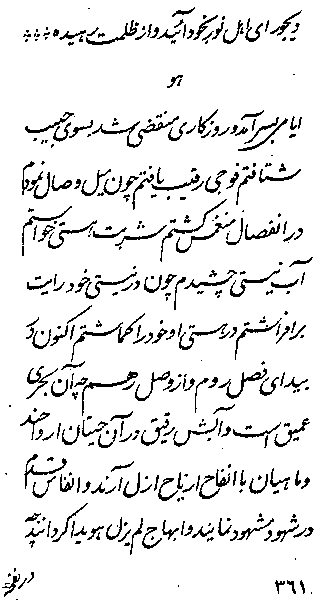 دیجور ای اهل نور بخود آئید و از ظلمت رهیده
هو
ایامی بسر آمد و روزکاری منقضی شد بسوی حبیب
شتافتم فوجی رقیب یافتم چون میل وصال نمودم
در انفصال منغمس کشتم شربت هستی خواستم
آب نیستی چشیدم چون در نیستی خود رایت
برافراشتم در هستی او خود را کماشتم اکنون که
بیدای فصل روم و از وصل رهم چه آن بحری
عمیق است و آبش رقیق در آن حیتان ارواحند
و ماهیان با انفاح اریاح ازل آرند و انفاس قدم
در شهود مشهود نمایند و ابهاج لم یزل هویدا کردانند چه
۳۶۱